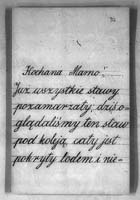 Kochana Mamo!
Już wszystkie stawy
pozamarzały; dziś o-
glądaliśmy ten staw
pod koleją, cały jest
pokryty lodem i nie-